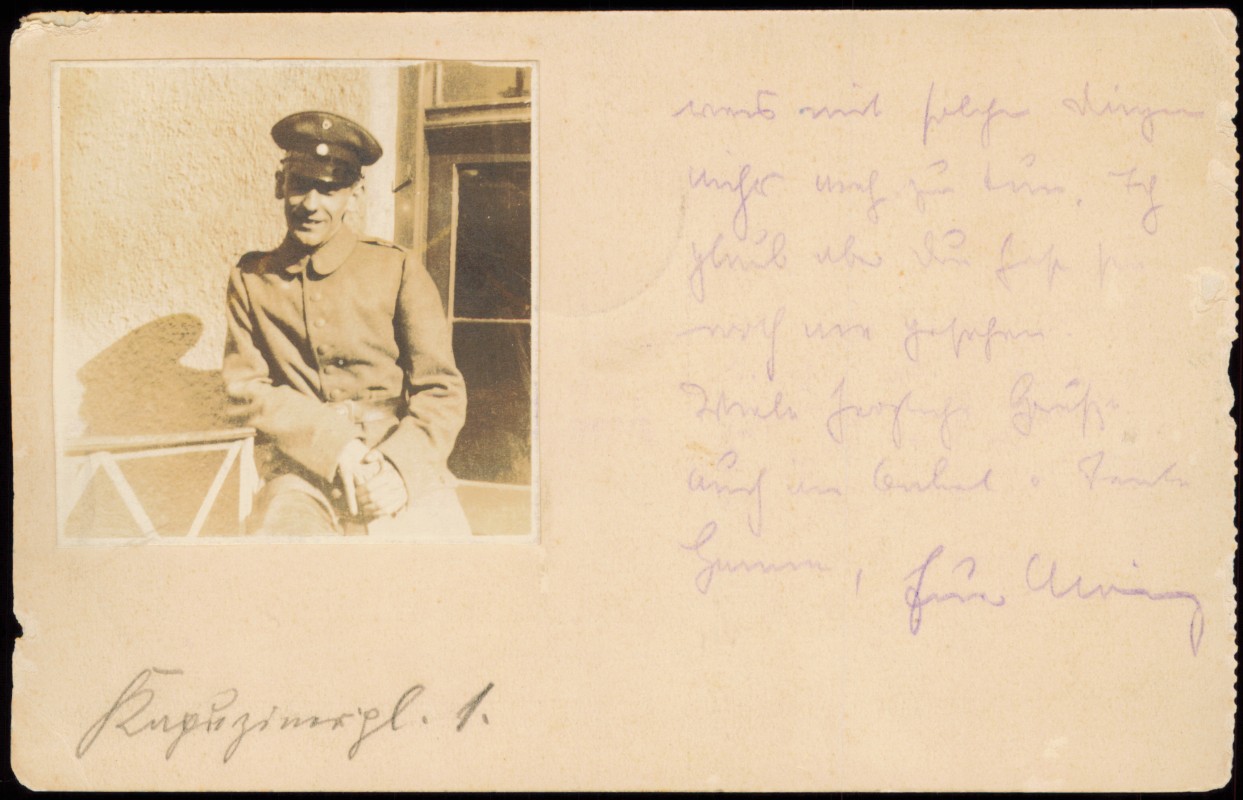 was mit solchen Dingen
nichts mehr zu tun. Ich
glaub aber Du hast
noch nie gesehen.
Viele herzliche Grüße
auch an Onkel u. Tante
Euer
Kapuzinerpl. 1.